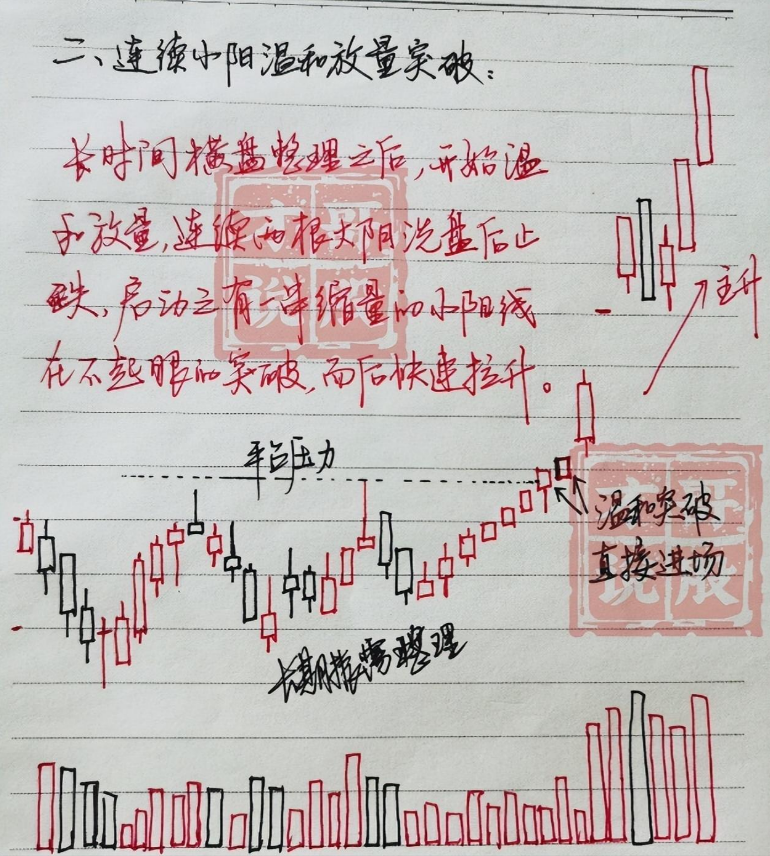 二、连续小阳温和放量突破：
长时间横盘整理之后，开始温
和放量，连续两根大阳洗盘后止
跌，启动之有一串缩量的小阳线
在不起眼的突破，而后快速拉升。
主升
平台压力
温和突破
直接进场
长期振荡整理